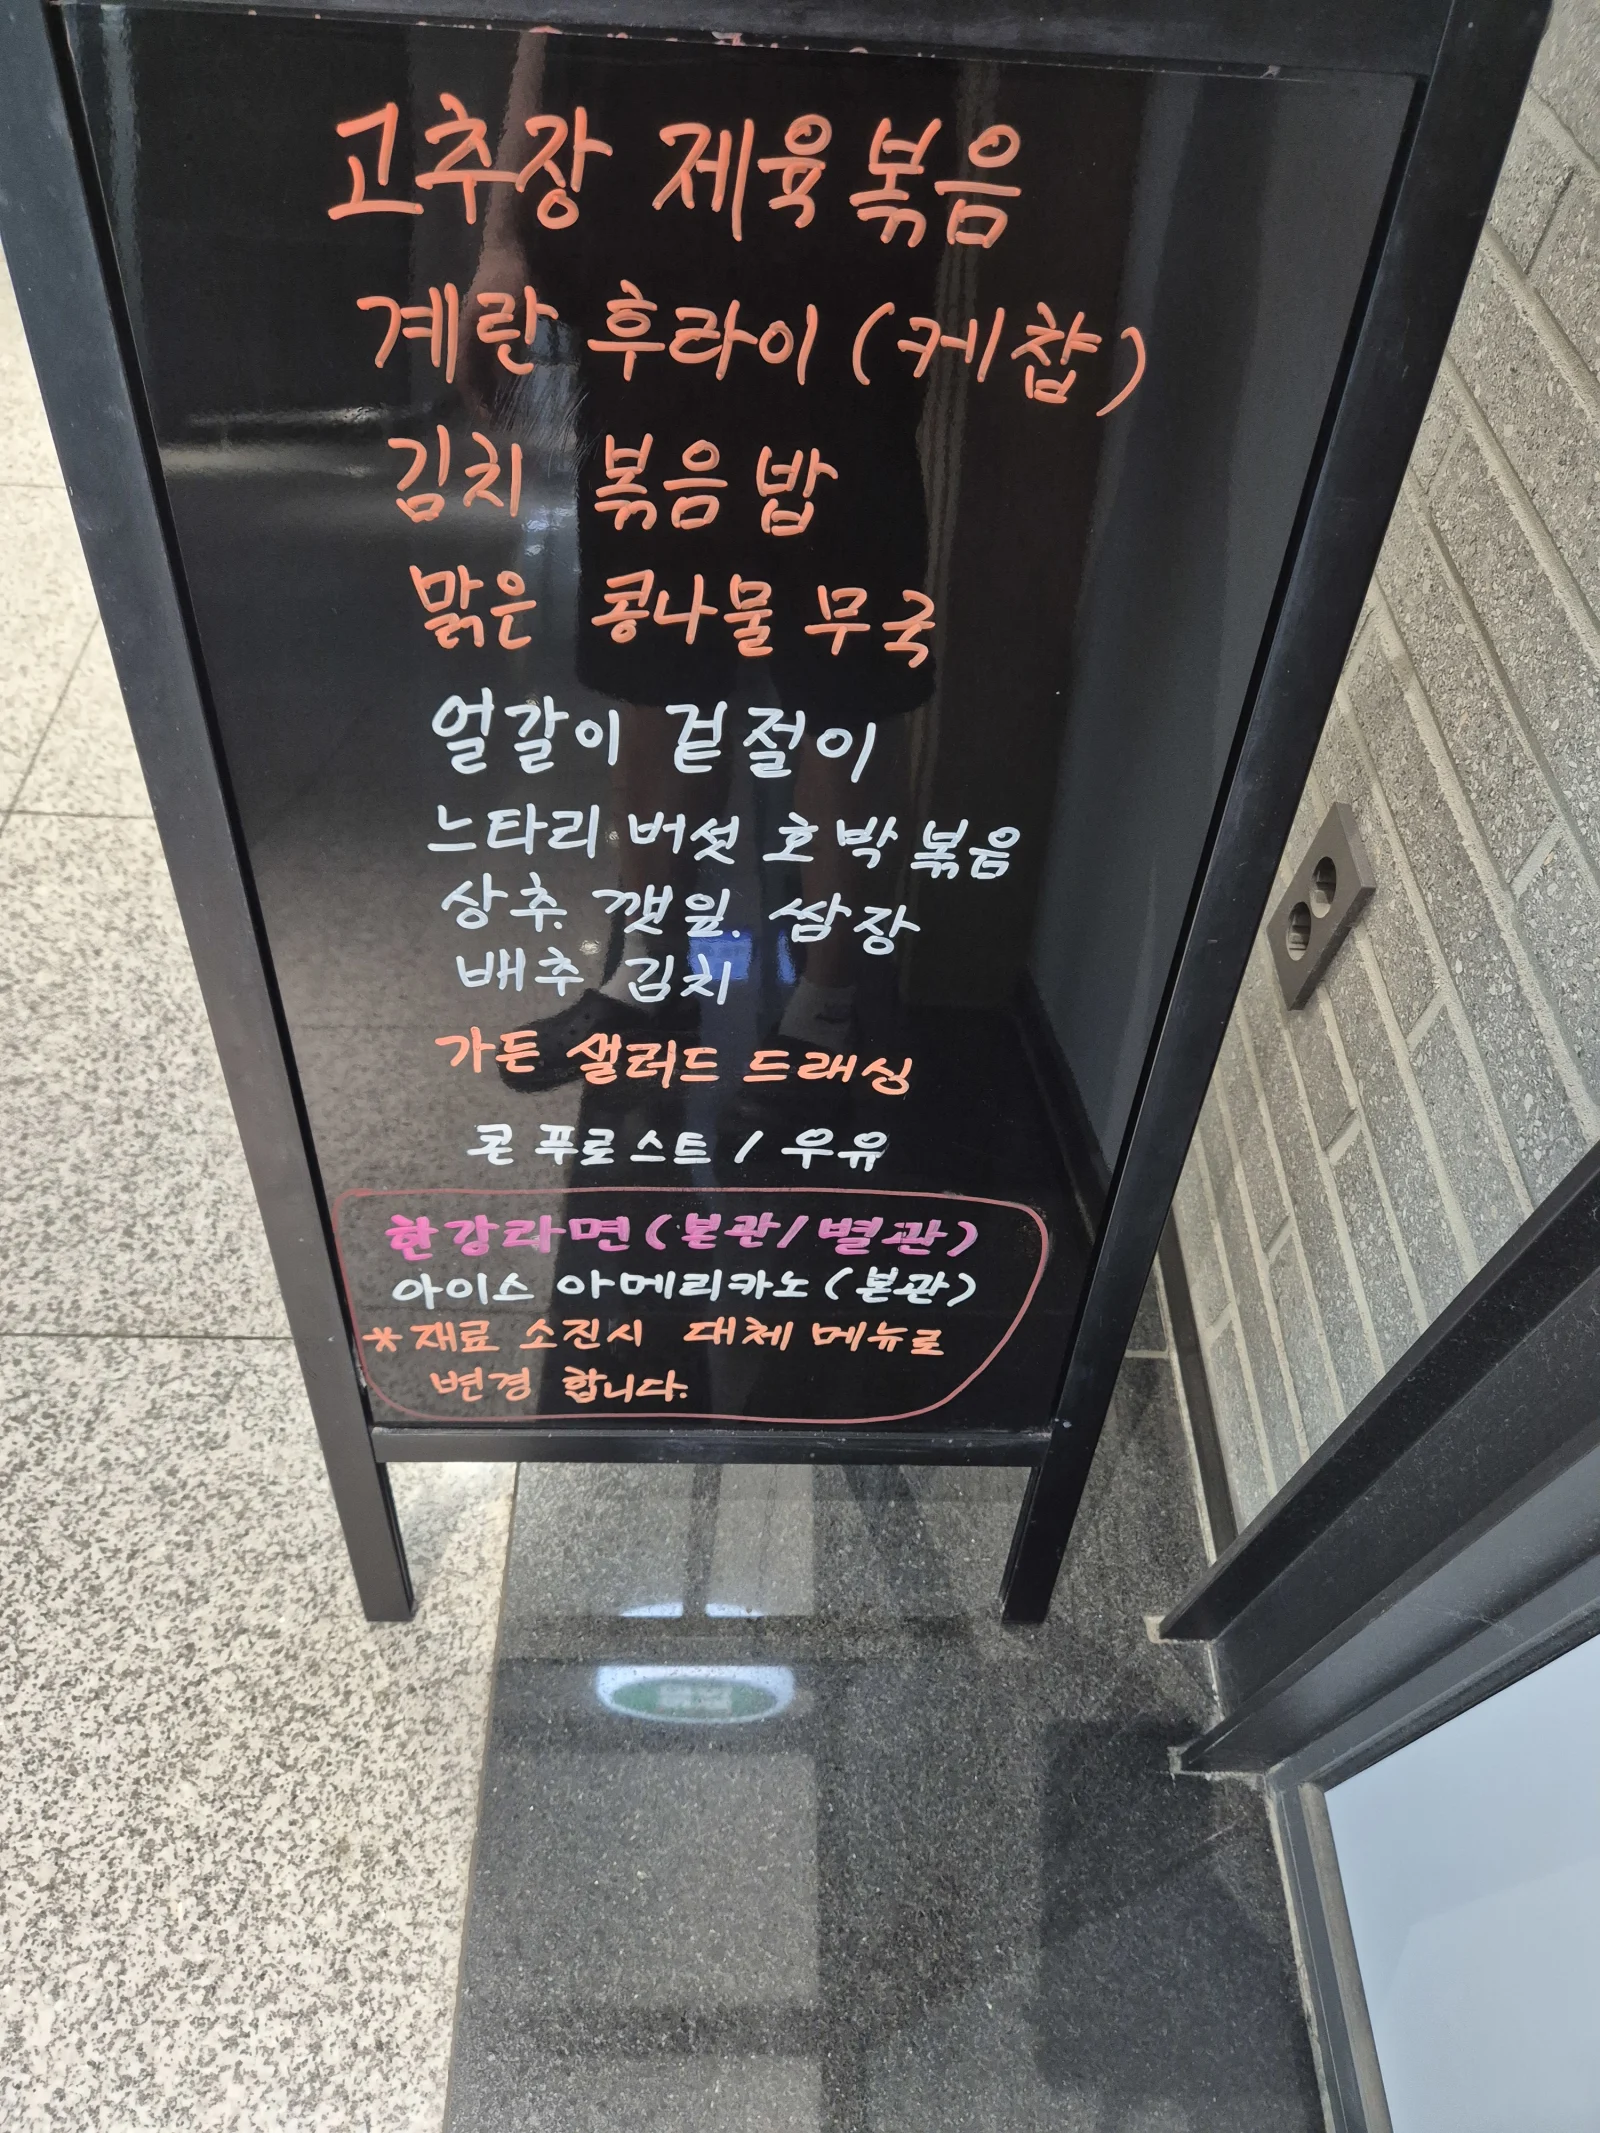 고추장 제육볶음
계란 후라이 (케찹)
김치 볶음밥
맑은 콩나물 무국
얼갈이 겉절이
느타리 버섯 호박볶음
상추. 깻잎. 쌈장
배추 김치
가든 샐러드 드래싱
콘 푸로스트 / 우유
한강라면 (본관/별관)
아이스 아메리카노 (본관)
*재료 소진시 대체 메뉴로
변경 합니다.